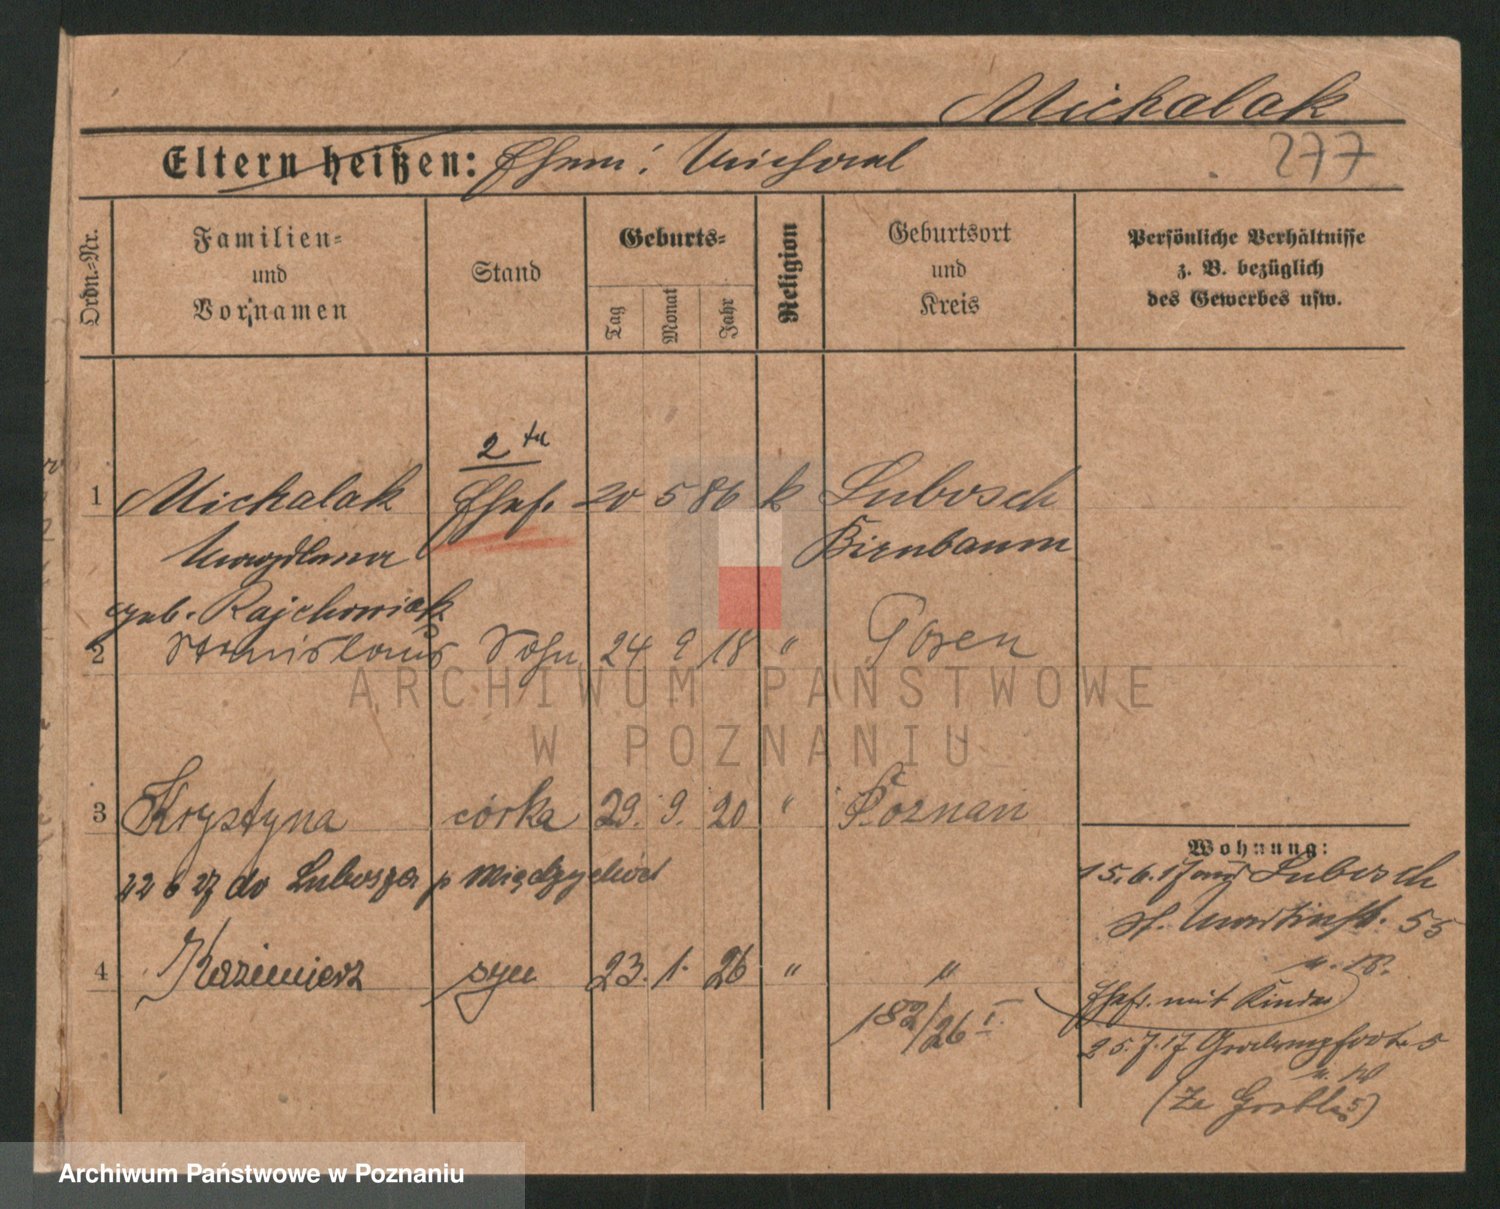 Michalak
277
Eltern heißen: Ehem: Michael
Ordn.=Nr.
Familien=
und
Vornamen
Stand
Geburts=
Tag
Monat
Jahr
Religion
Geburtsort
und
Kreis
Persönliche Verhältnisse
z. B. bezüglich
des Gewerbes usw.
2 te
1 Michalak Ehefr. 20 5 86 k Lubosch
Magdlena Birnbaum
geb. Rajchowiak
2 Stanislaus Sohn 24 9 18 " Posen
3 Krystyna córka 29. 9. 20 " Poznań
22 6 27 do Lubosza p Międzychód
4 Kazimierz syn 23. 1. 26 " "
182/26 I.
Wohnung:
15.6.17 aus Lubosch
St. Martinstr. 55
Ehefr. mit Kinder
25.7.17 5
(Za Groblą 5)
ARCHIWUM PAŃSTWOWE
W POZNANIU
Archiwum Państwowe w Poznaniu